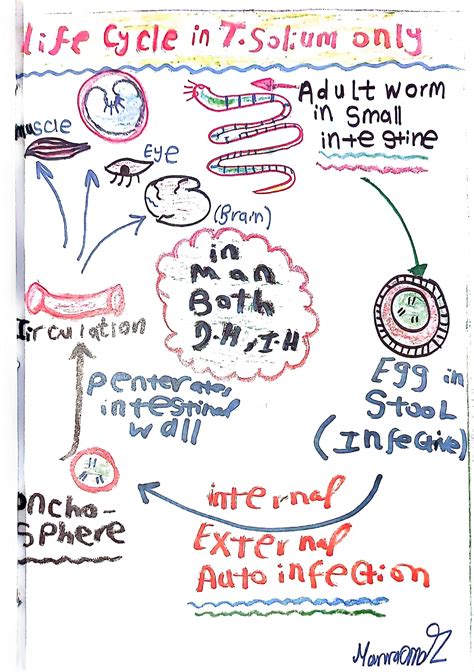 life Cycle in T.Solium only
Adult worm
in Small
intestine
muscle
Eye
(Brain)
in
Man
Both
D.H, I.H
Circulation
Egg in
Stool
(Infective)
penterates
intestinal
wall
oncho-
sphere
internal
External
Auto infection